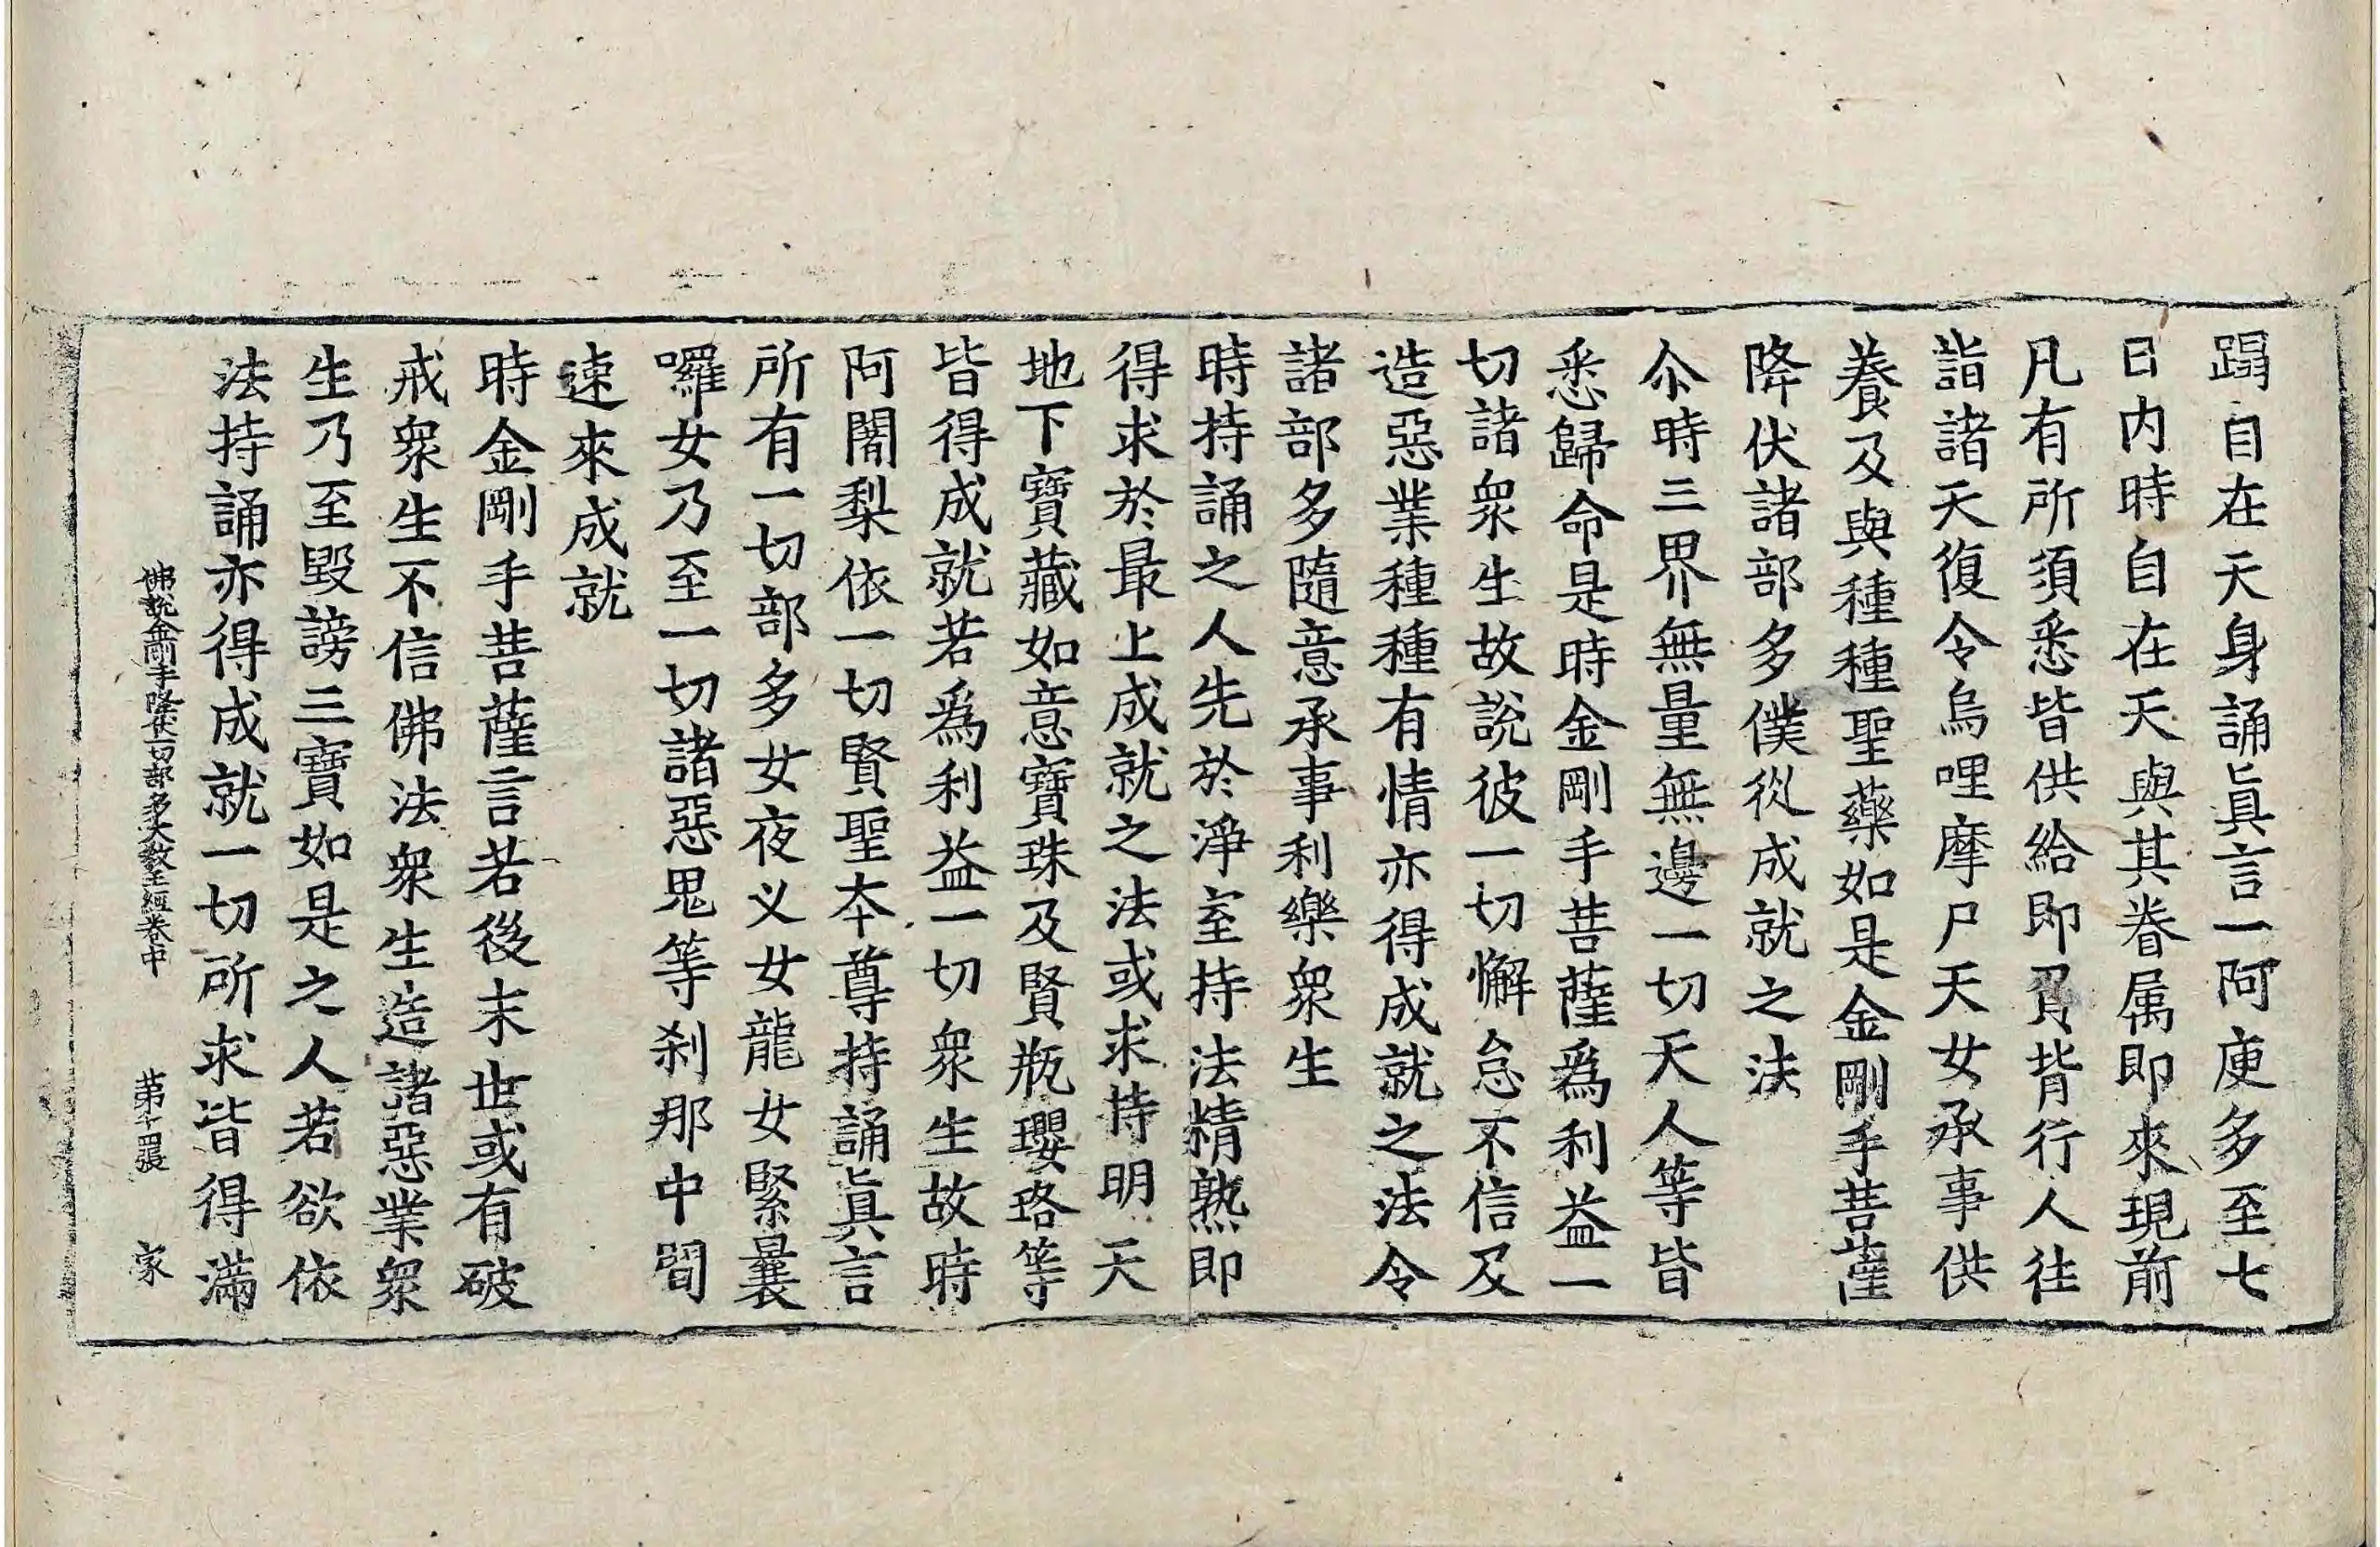 蹋自在天身誦眞言一阿庾多至七
日内時自在天與其眷属即來現前
凡有所須悉皆供給即負背行人往
詣諸天復令烏哩摩尸天女承事供
養及與種種聖藥如是金剛手菩薩
降伏諸部多僕從成就之法
尒時三界無量無邊一切天人等皆
悉歸命是時金剛手菩薩爲利益一
切諸衆生故說彼一切懈怠不信及
造惡業種種有情亦得成就之法令
諸部多隨意承事利樂衆生
時持誦之人先於淨室持法精熟即
得求於最上成就之法或求持明天
地下寶藏如意寶珠及賢瓶瓔珞等
皆得成就若爲利益一切衆生故時
阿闍梨依一切賢聖夲尊持誦眞言
所有一切部多女夜义女龍女緊曩
囉女乃至一切諸惡鬼等刹那中間
速來成就
時金剛手菩薩言若後末世或有破
戒衆生不信佛法衆生造諸惡業衆
生乃至毀謗三寶如是之人若欲依
法持誦亦得成就一切所求皆得滿
佛說金剛手降伏一切部多大教王經卷中 第十四張 家